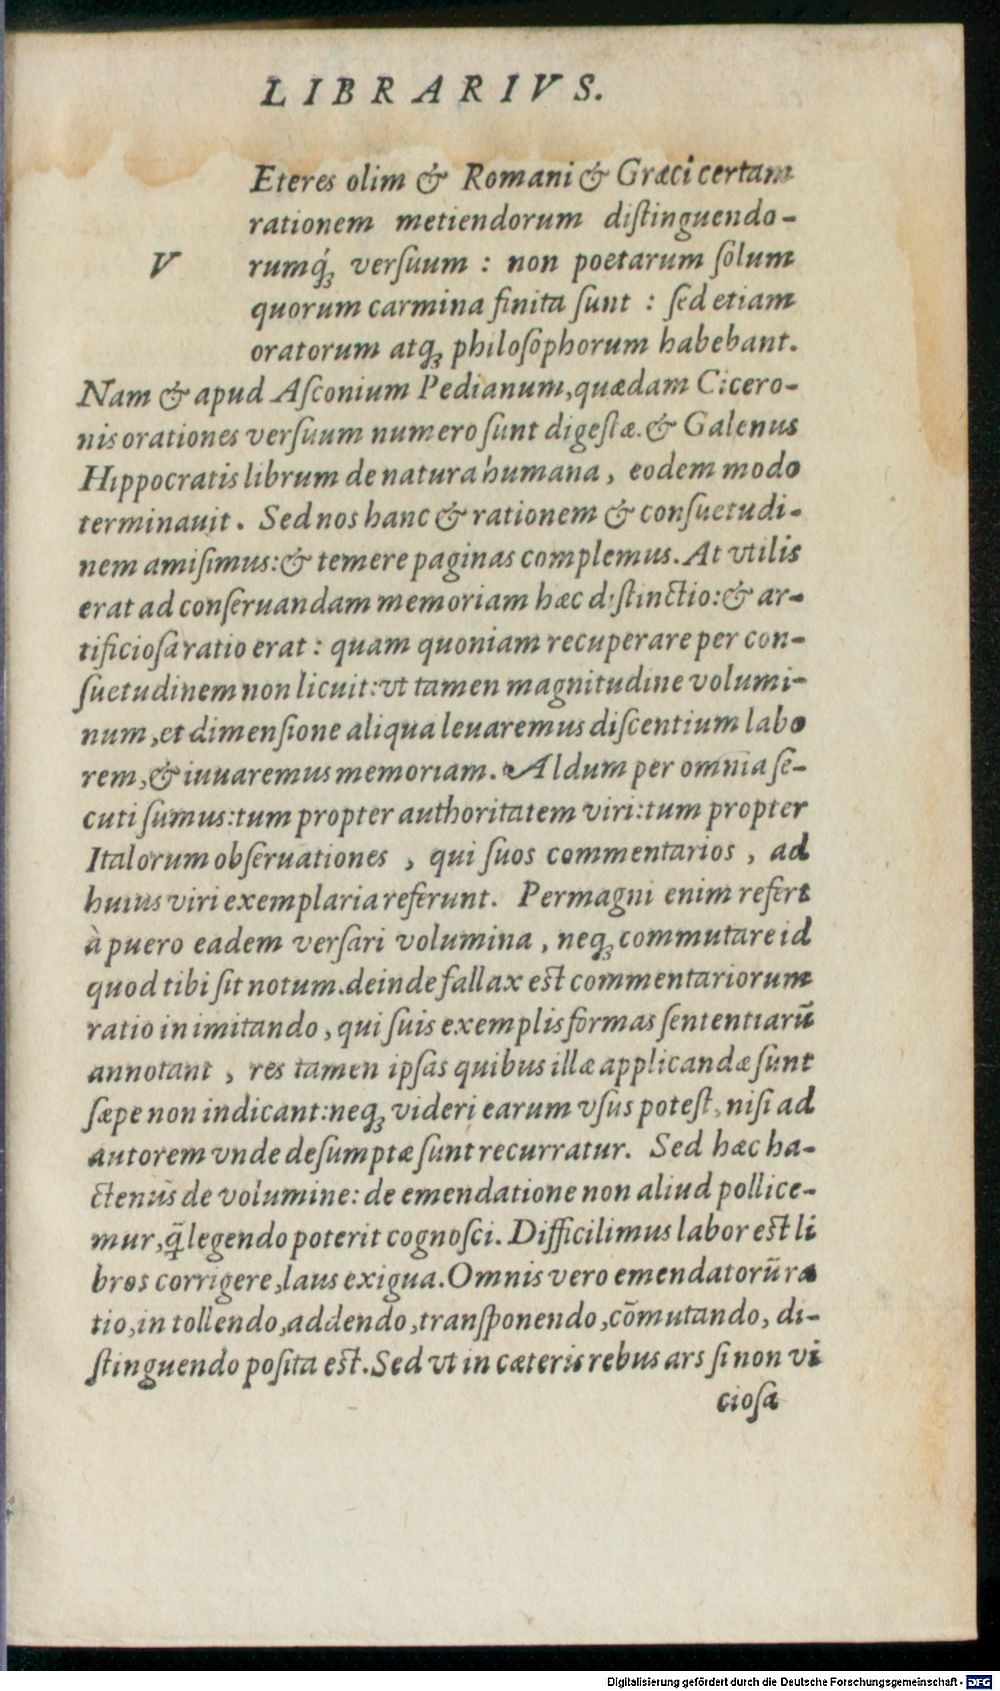 LIBRARIVS.
V Eteres olim & Romani & Græci certam
rationem metiendorum diſtinguendo-
rumq́ꝫ verſuum : non poetarum ſolum
quorum carmina finita ſunt : ſed etiam
oratorum atqꝫ philoſophorum habebant.
Nam & apud Aſconium Pedianum,quædam Cicero-
nis orationes verſuum numero ſunt digeſtæ. & Galenus
Hippocratis librum de natura humana, eodem modo
terminauit. Sed nos hanc & rationem & conſuetudi-
nem amiſimus:& temere paginas complemus. At vtilis
erat ad conſeruandam memoriam hæc diſtinctio:& ar-
tificioſa ratio erat : quam quoniam recuperare per con-
ſuetudinem non licuit:vt tamen magnitudine volumi-
num,et dimenſione aliqua leuaremus diſcentium labo
rem,& iuuaremus memoriam. Aldum per omnia ſe-
cuti ſumus:tum propter authoritatem viri:tum propter
Italorum obſeruationes , qui ſuos commentarios , ad
huius viri exemplaria referunt. Permagni enim refert
à puero eadem verſari volumina , neqꝫ commutare id
quod tibi ſit notum.deinde fallax eſt commentariorum
ratio in imitando, qui ſuis exemplis formas ſententiarū
annotant , res tamen ipſas quibus illæ applicandæ ſunt
ſæpe non indicant:neqꝫ videri earum vſus poteſt, niſi ad
autorem vnde deſumptæ ſunt recurratur. Sed hæc ha-
ctenus de volumine: de emendatione non aliud pollice-
mur,q̃ legendo poterit cognoſci. Difficilimus labor eſt li
bros corrigere,laus exigua.Omnis vero emendatorū ra
tio,in tollendo,addendo,tranſponendo,cōmutando, di-
ſtinguendo poſita eſt.Sed vt in cæteris rebus ars ſi non vi
cioſa
Digitalisierung gefördert durch die Deutsche Forschungsgemeinschaft - DFG